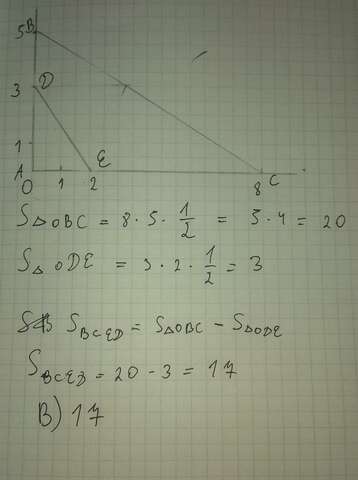 5 B
3 D
1 E
A
0 1 2 8 C
S△OBC = 8 · 5 · 1/2 = 5 · 4 = 20
S△ODE = 3 · 2 · 1/2 = 3
S BCED = S△OBC − S△ODE
S BCED = 20 - 3 = 17
B) 17